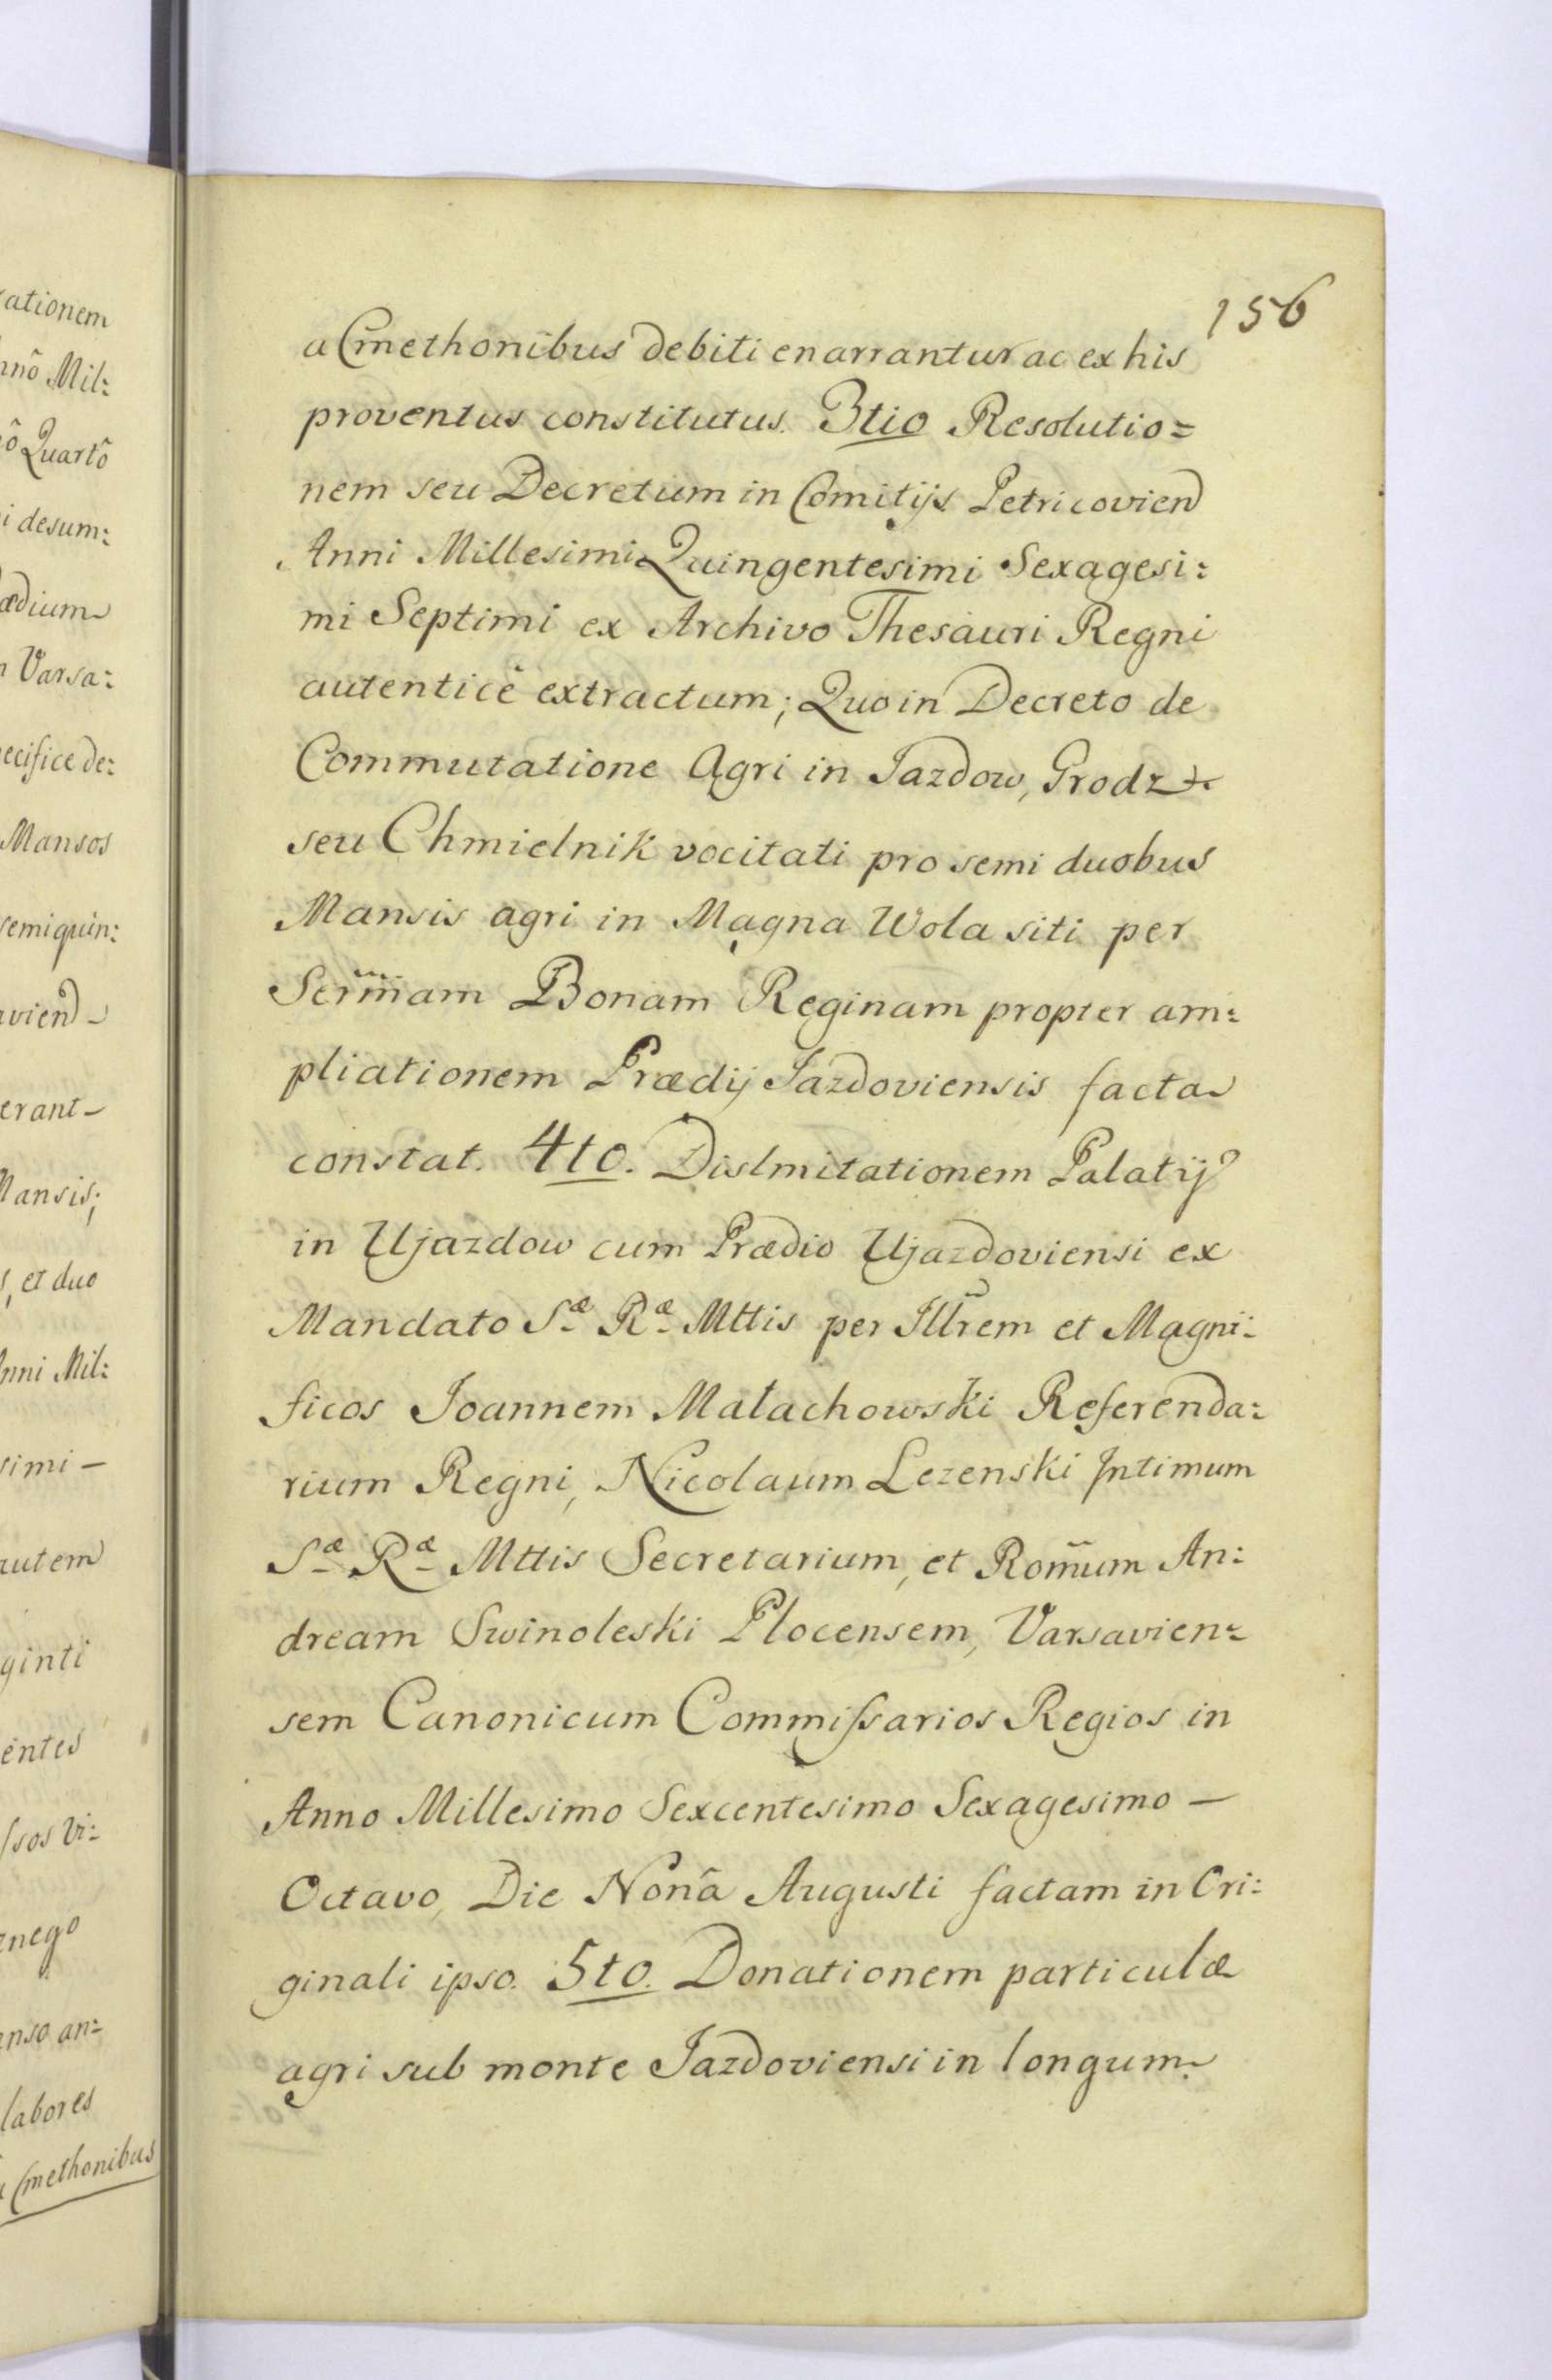 ationem
nnô Mil:
ô Quartô
i desum:
ædium
n Varsa:
ecifice de:
Mansos
semiquin:
avien
erant
Mansis;
s, et duo
Anni Mil:
simi –
autem
ginti
entes
ssos Vi:
znego
anso an:
labores
a Cmethonibus
156
a Cmethonibus debiti enarrantur ac ex his
proventus constitutus. 3tio Resolutio=
nem seu Decretum in Comitijs Petricovien
Anni Millesimi Quingentesimi Sexagesi:
mi Septimi ex Archivo Thesauri Regni
autenticè extractum; Quo in Decreto de
Commutatione Agri in Jazdow, Grodz
seu Chmielnik vocitati pro semi duobus
Mansis agri in Magna Wola siti per
Serm̃am Bonam Reginam propter am:
pliationem Prædij Jazdoviensis facta
constat. 4to. Dislmitationem Palatij
in Ujazdow cum Prædio Ujazdoviensi ex
Mandato Sæ Ræ Mttis per Illr̃em et Magni:
ficos Joannem Małachowski Referenda:
rium Regni, Nicolaum Lezenski Intimum
Sæ Ræ Mttis Secretarium, et Rom̃um An:
dream Swinoleski Plocensem, Varsavien:
sem Canonicum Commissarios Regios in
Anno Millesimo Sexcentesimo Sexagesimo –
Octavo, Die Nonâ Augusti factam in Ori:
ginali ipso. 5to. Donationem particulæ
agri sub monte Jazdoviensi in longum